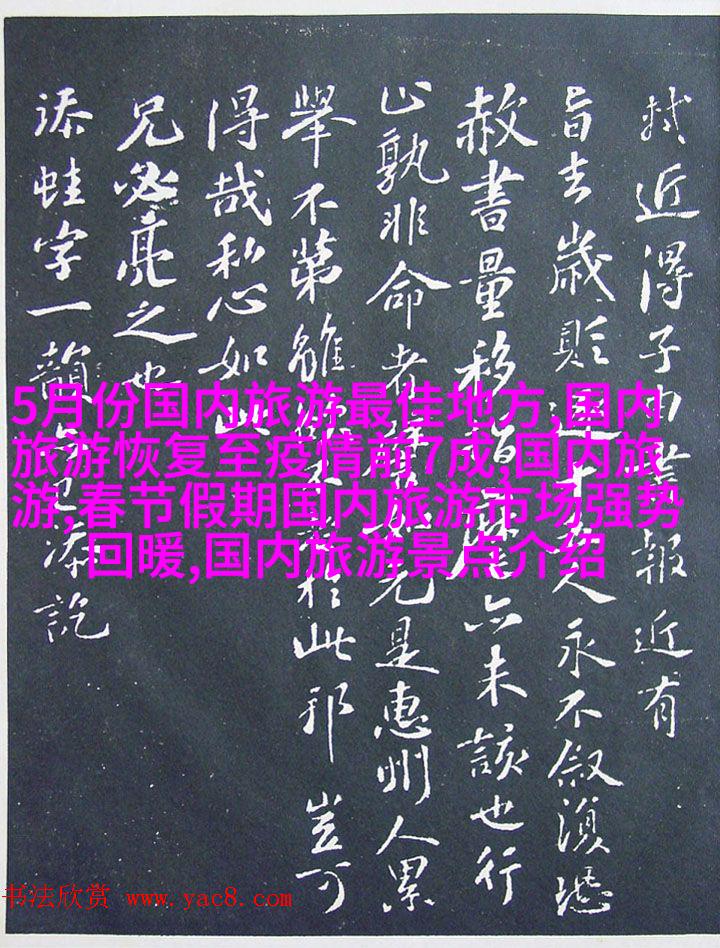 軾近得子由書報近有
旨去歲貶逐十五人永不叙恐
赦書量移指揮亦未該也行
止孰非命者譬如元是惠州人累
舉不第雖欲不老於此邪豈可
得哉私心如此
兄必亮之也
添蛙字一韻已添訖
5月份国内旅游最佳地方,国内
旅游恢复至疫情前7成,国内旅
游,春节假期国内旅游市场强势
回暖,国内旅游景点介绍
书法欣赏 www.yac8.com